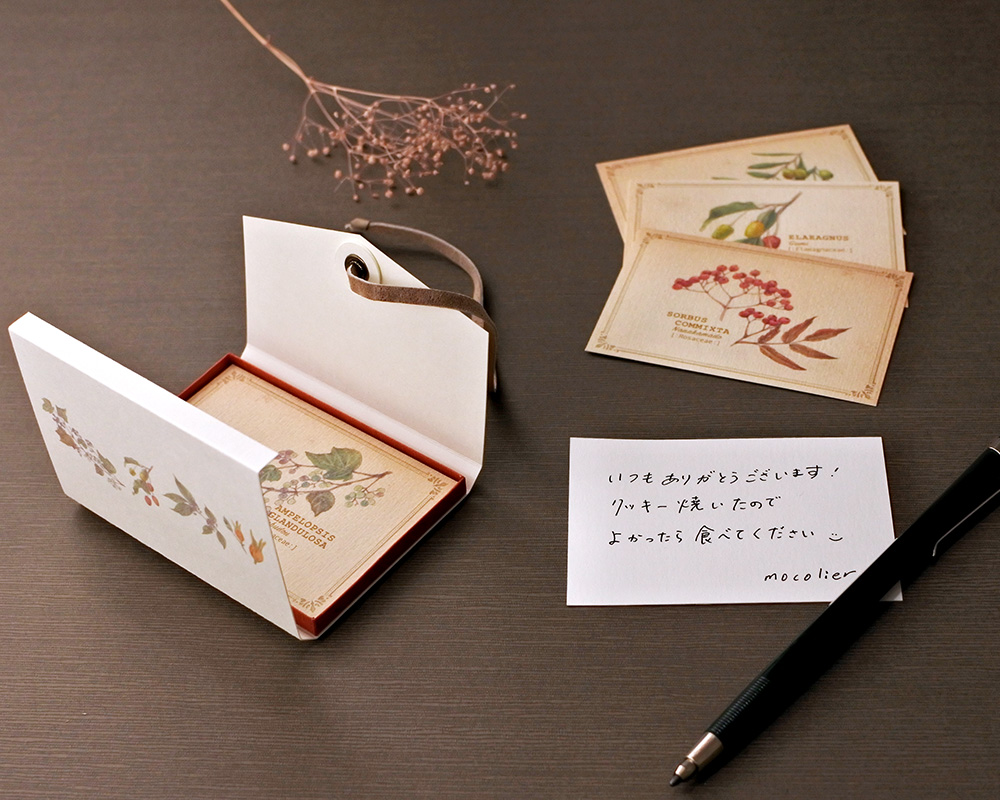 ELAEAGNUS
Gumi
SORBUS
COMMIXTA
Nanakamado
[-Rosaceae-]
いつもありがとうございます!
クッキー焼いたので
よかったら食べてください
mocolier
AMPELOPSIS
GLANDULOSA